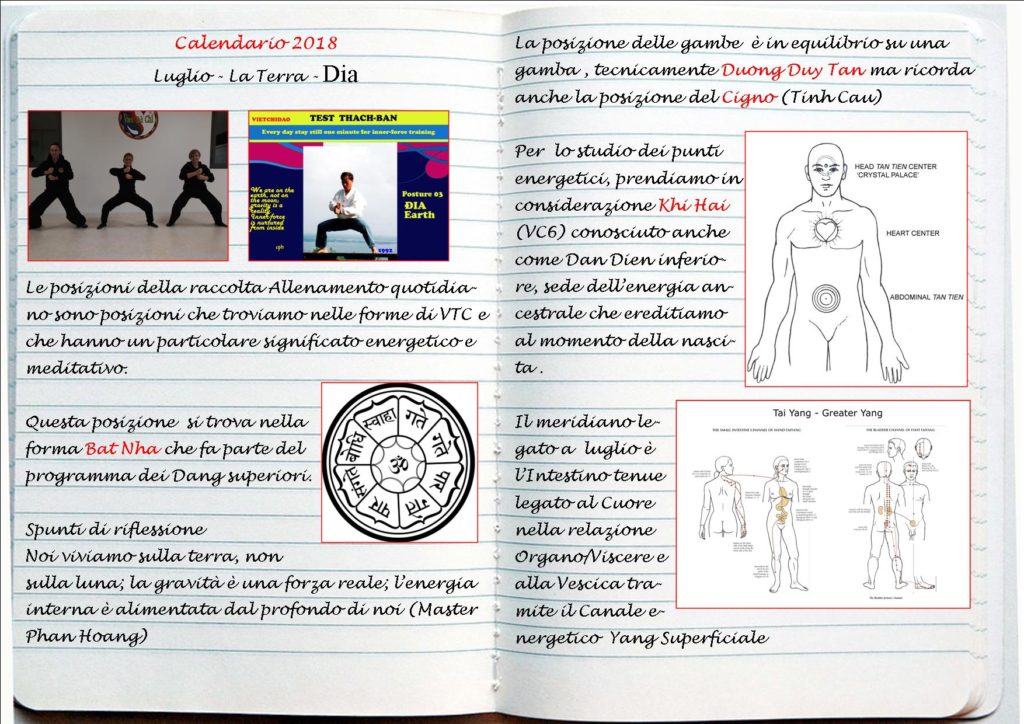 Calendario 2018
Luglio - La Terra - Dia
VIETCHIDAO TEST THACH-BAN
Every day stay still one minute for inner-force training
We are on the
earth, not on
the moon;
gravity is a
reality.
Inner-force
is nurtured
from inside
Posture 03
ĐIA
Earth
1992
Le posizioni della raccolta Allenamento quotidia-
no sono posizioni che troviamo nelle forme di VTC e
che hanno un particolare significato energetico e
meditativo.
Questa posizione si trova nella
forma Bat Nha che fa parte del
programma dei Dang superiori.
गते
गते
पार
गते
पार
संगते
बोधि
स्वाहा
ॐ
Spunti di riflessione
Noi viviamo sulla terra, non
sulla luna; la gravità è una forza reale; l'energia
interna è alimentata dal profondo di noi (Master
Phan Hoang)
La posizione delle gambe è in equilibrio su una
gamba , tecnicamente Duong Duy Tan ma ricorda
anche la posizione del Cigno (Tinh Cau)
Per lo studio dei punti
energetici, prendiamo in
considerazione Khi Hai
(VC6) conosciuto anche
come Dan Dien inferio-
re, sede dell'energia an-
cestrale che ereditiamo
al momento della nasci-
ta .
HEAD TAN TIEN CENTER
'CRYSTAL PALACE'
HEART CENTER
ABDOMINAL TAN TIEN
Il meridiano le-
gato a luglio è
l'Intestino tenue
legato al Cuore
nella relazione
Organo/Viscere e
alla Vescica tra-
mite il Canale e-
nergetico Yang Superficiale
Tai Yang - Greater Yang
THE SMALL INTESTINE CHANNEL OF HAND TAIYANG
THE BLADDER CHANNEL OF FOOT TAIYANG